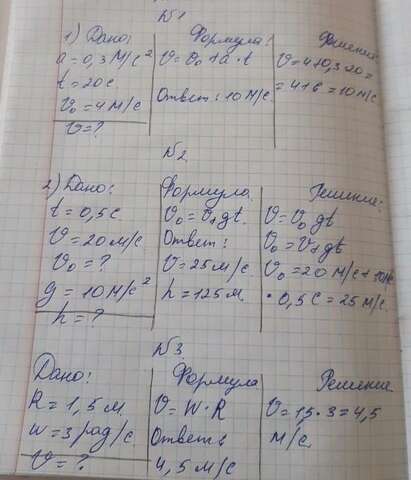 №1
1) Дано:
a = 0,3 м/с²
t = 20 с.
v₀ = 4 м/с
v = ?
Формула:
v = v₀ + a · t
Ответ: 10 м/с.
Решение
v = 4+0,3·20 =
= 4+6 = 10 м/с
№2
2) Дано:
t = 0,5 с
v = 20 м/с
v₀ = ?
g = 10 м/с²
h = ?
Формула
v₀ = v+gt.
Ответ:
v = 25 м/с
h = 125 м.
Решение:
v = v₀gt
v₀ = v+gt
v₀ = 20 м/с + 10м/с
· 0,5 с = 25 м/с.
№3
Дано:
R = 1,5 м
w = 3 рад/с
v = ?
Формула
v = w · R
Ответ:
4,5 м/с
Решение
v = 1,5 · 3 = 4,5
м/с.